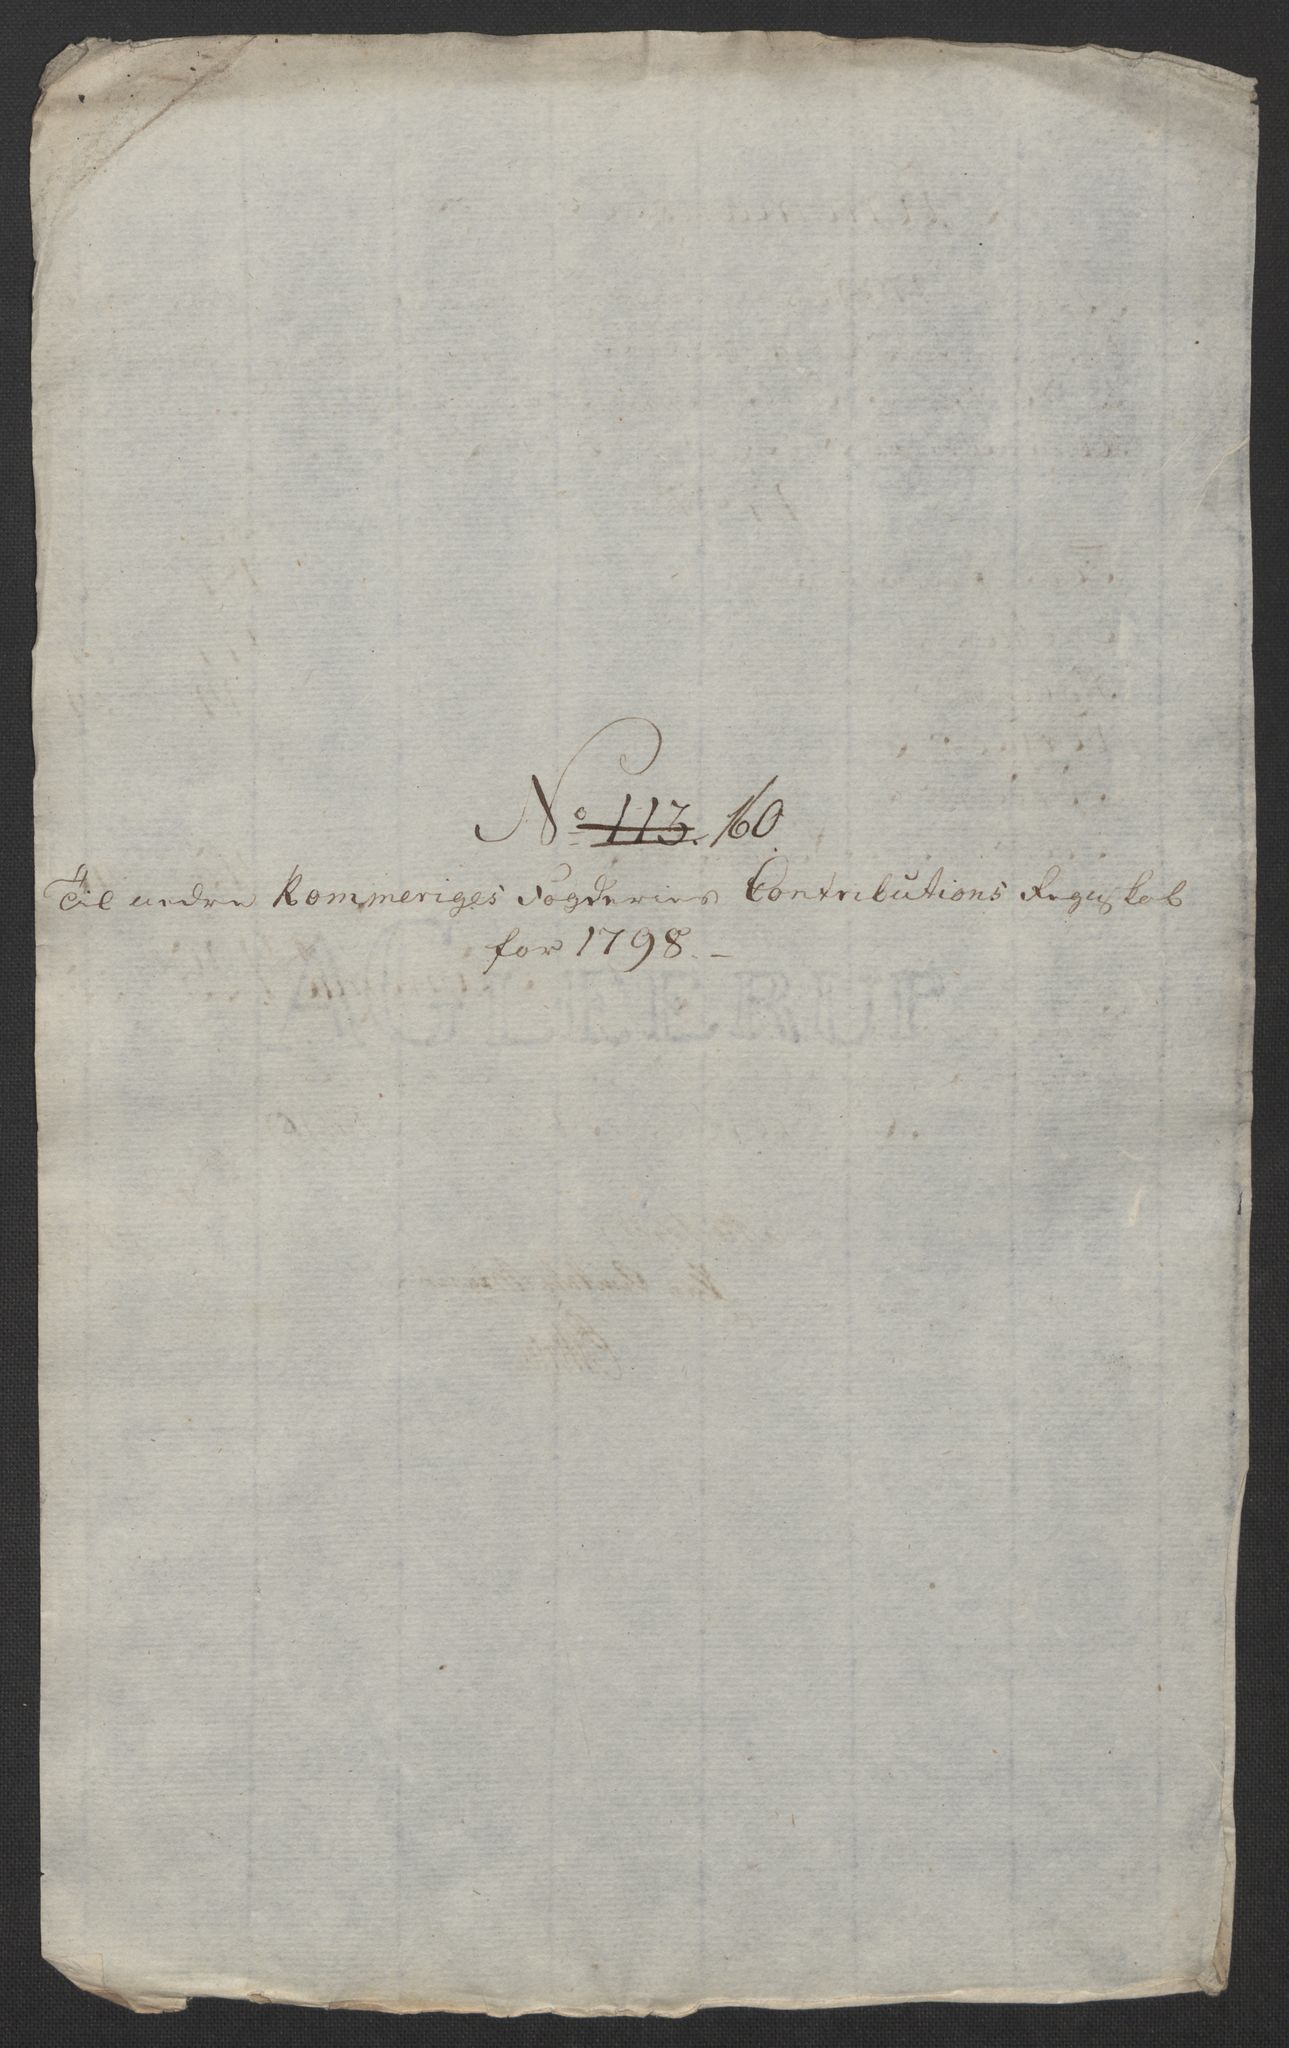 No 113. 160.
Til nedre Rommeriges Fogderies Contributions Regnskab
for 1798. –